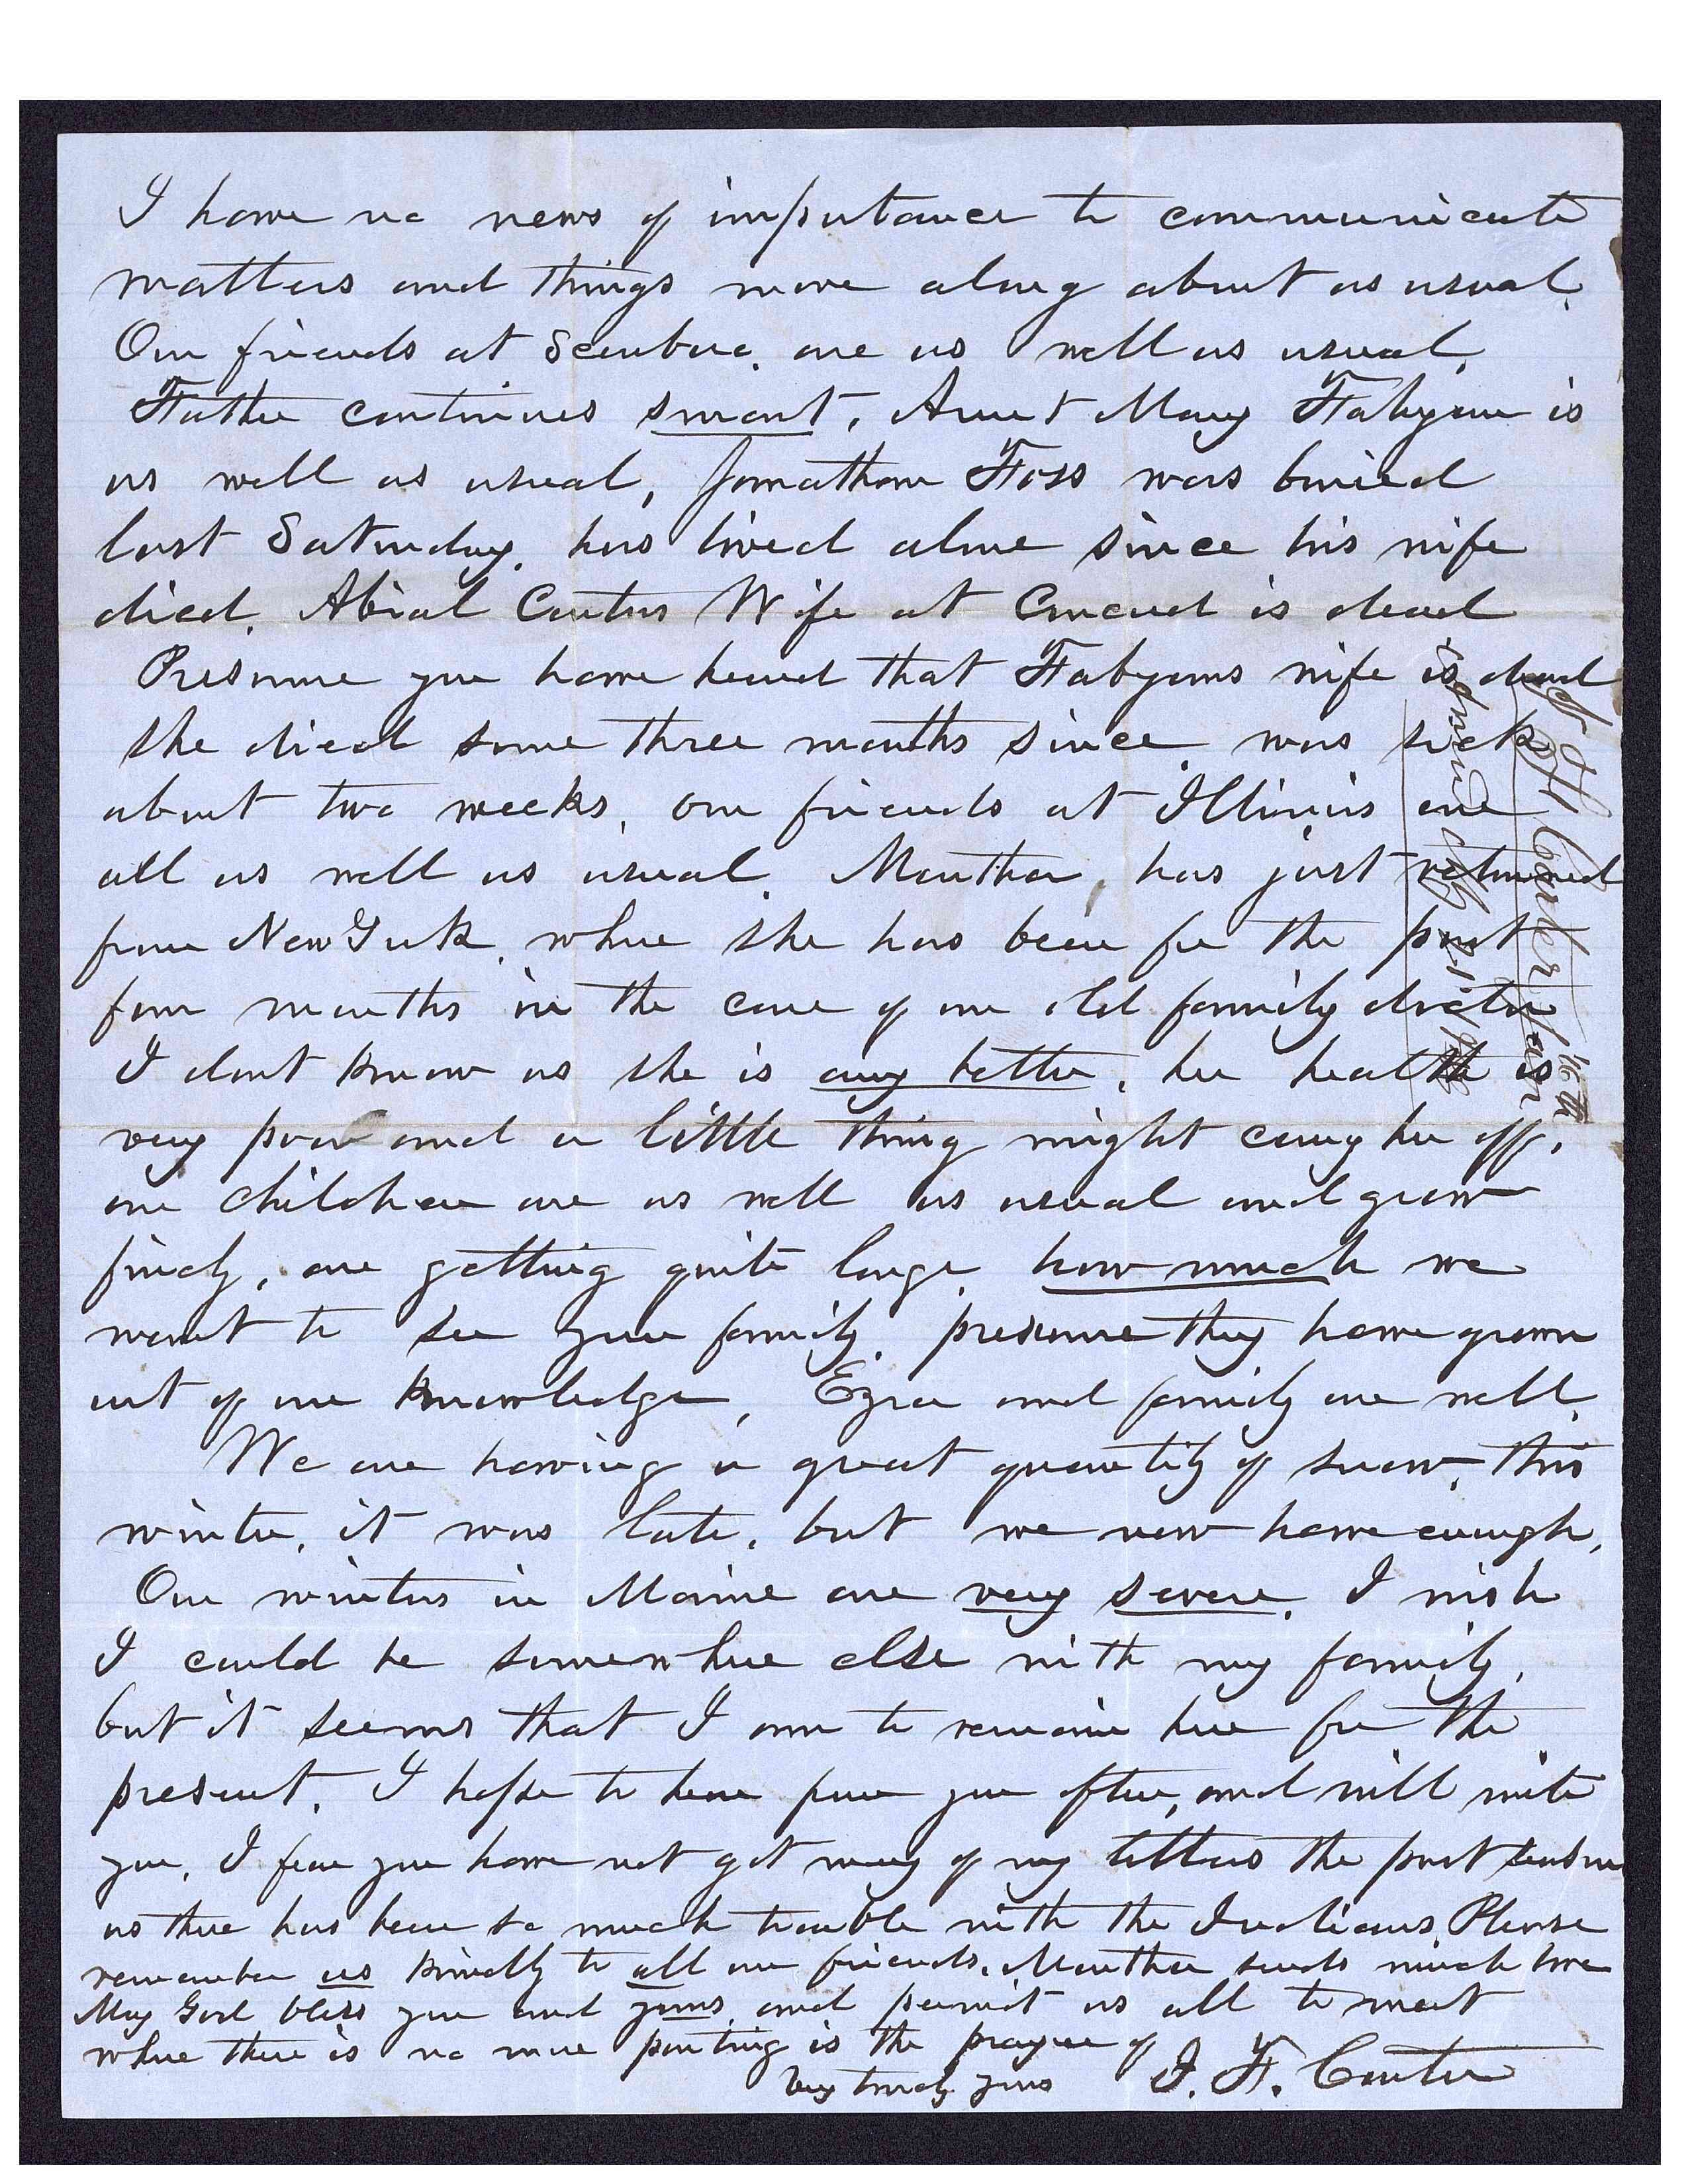 I have no news of importance to communicate
matters and things move along about as usual.
Our friends at Scarboro. are as well as usual,
Father continues smart, Aunt Mary Fabyan is
as well as usual, Jonathan Foss was buried
last Saturday. has lived alone since his wife
died. Abial Carters Wife at Concord is dead
Presume you have heard that Fabyans wife is dead
she died some three months since, was sick
about two weeks, our friends at Illinois are
all as well as usual. Martha, has just returned
from New York, where she has been for the past
four months in the care of our old family doctor
I dont know as she is any better, her health is
very poor and a little thing might carry her off,
our children are as well as usual and grow
finely, are getting quite large, how much we
want to see your family, presume they have grown
out of our knowledge, Ezra and family are well.
We are having a great quantity of snow, this
winter, it was late, but we now have enough,
Our winters in Maine are very severe, I wish
I could be somewhere else with my family,
but it seems that I am to remain here for the
present. I hope to hear from you often, and will write
you, I fear you have not got many of my letters the past season
as there has been so much trouble with the Indians, Please
remember us kindly to all our friends. Martha sends much love
May God bless you and yours, and permit us all to meet
where there is no more parting is the prayer of
Very truly yours J. F. Carter
Carter